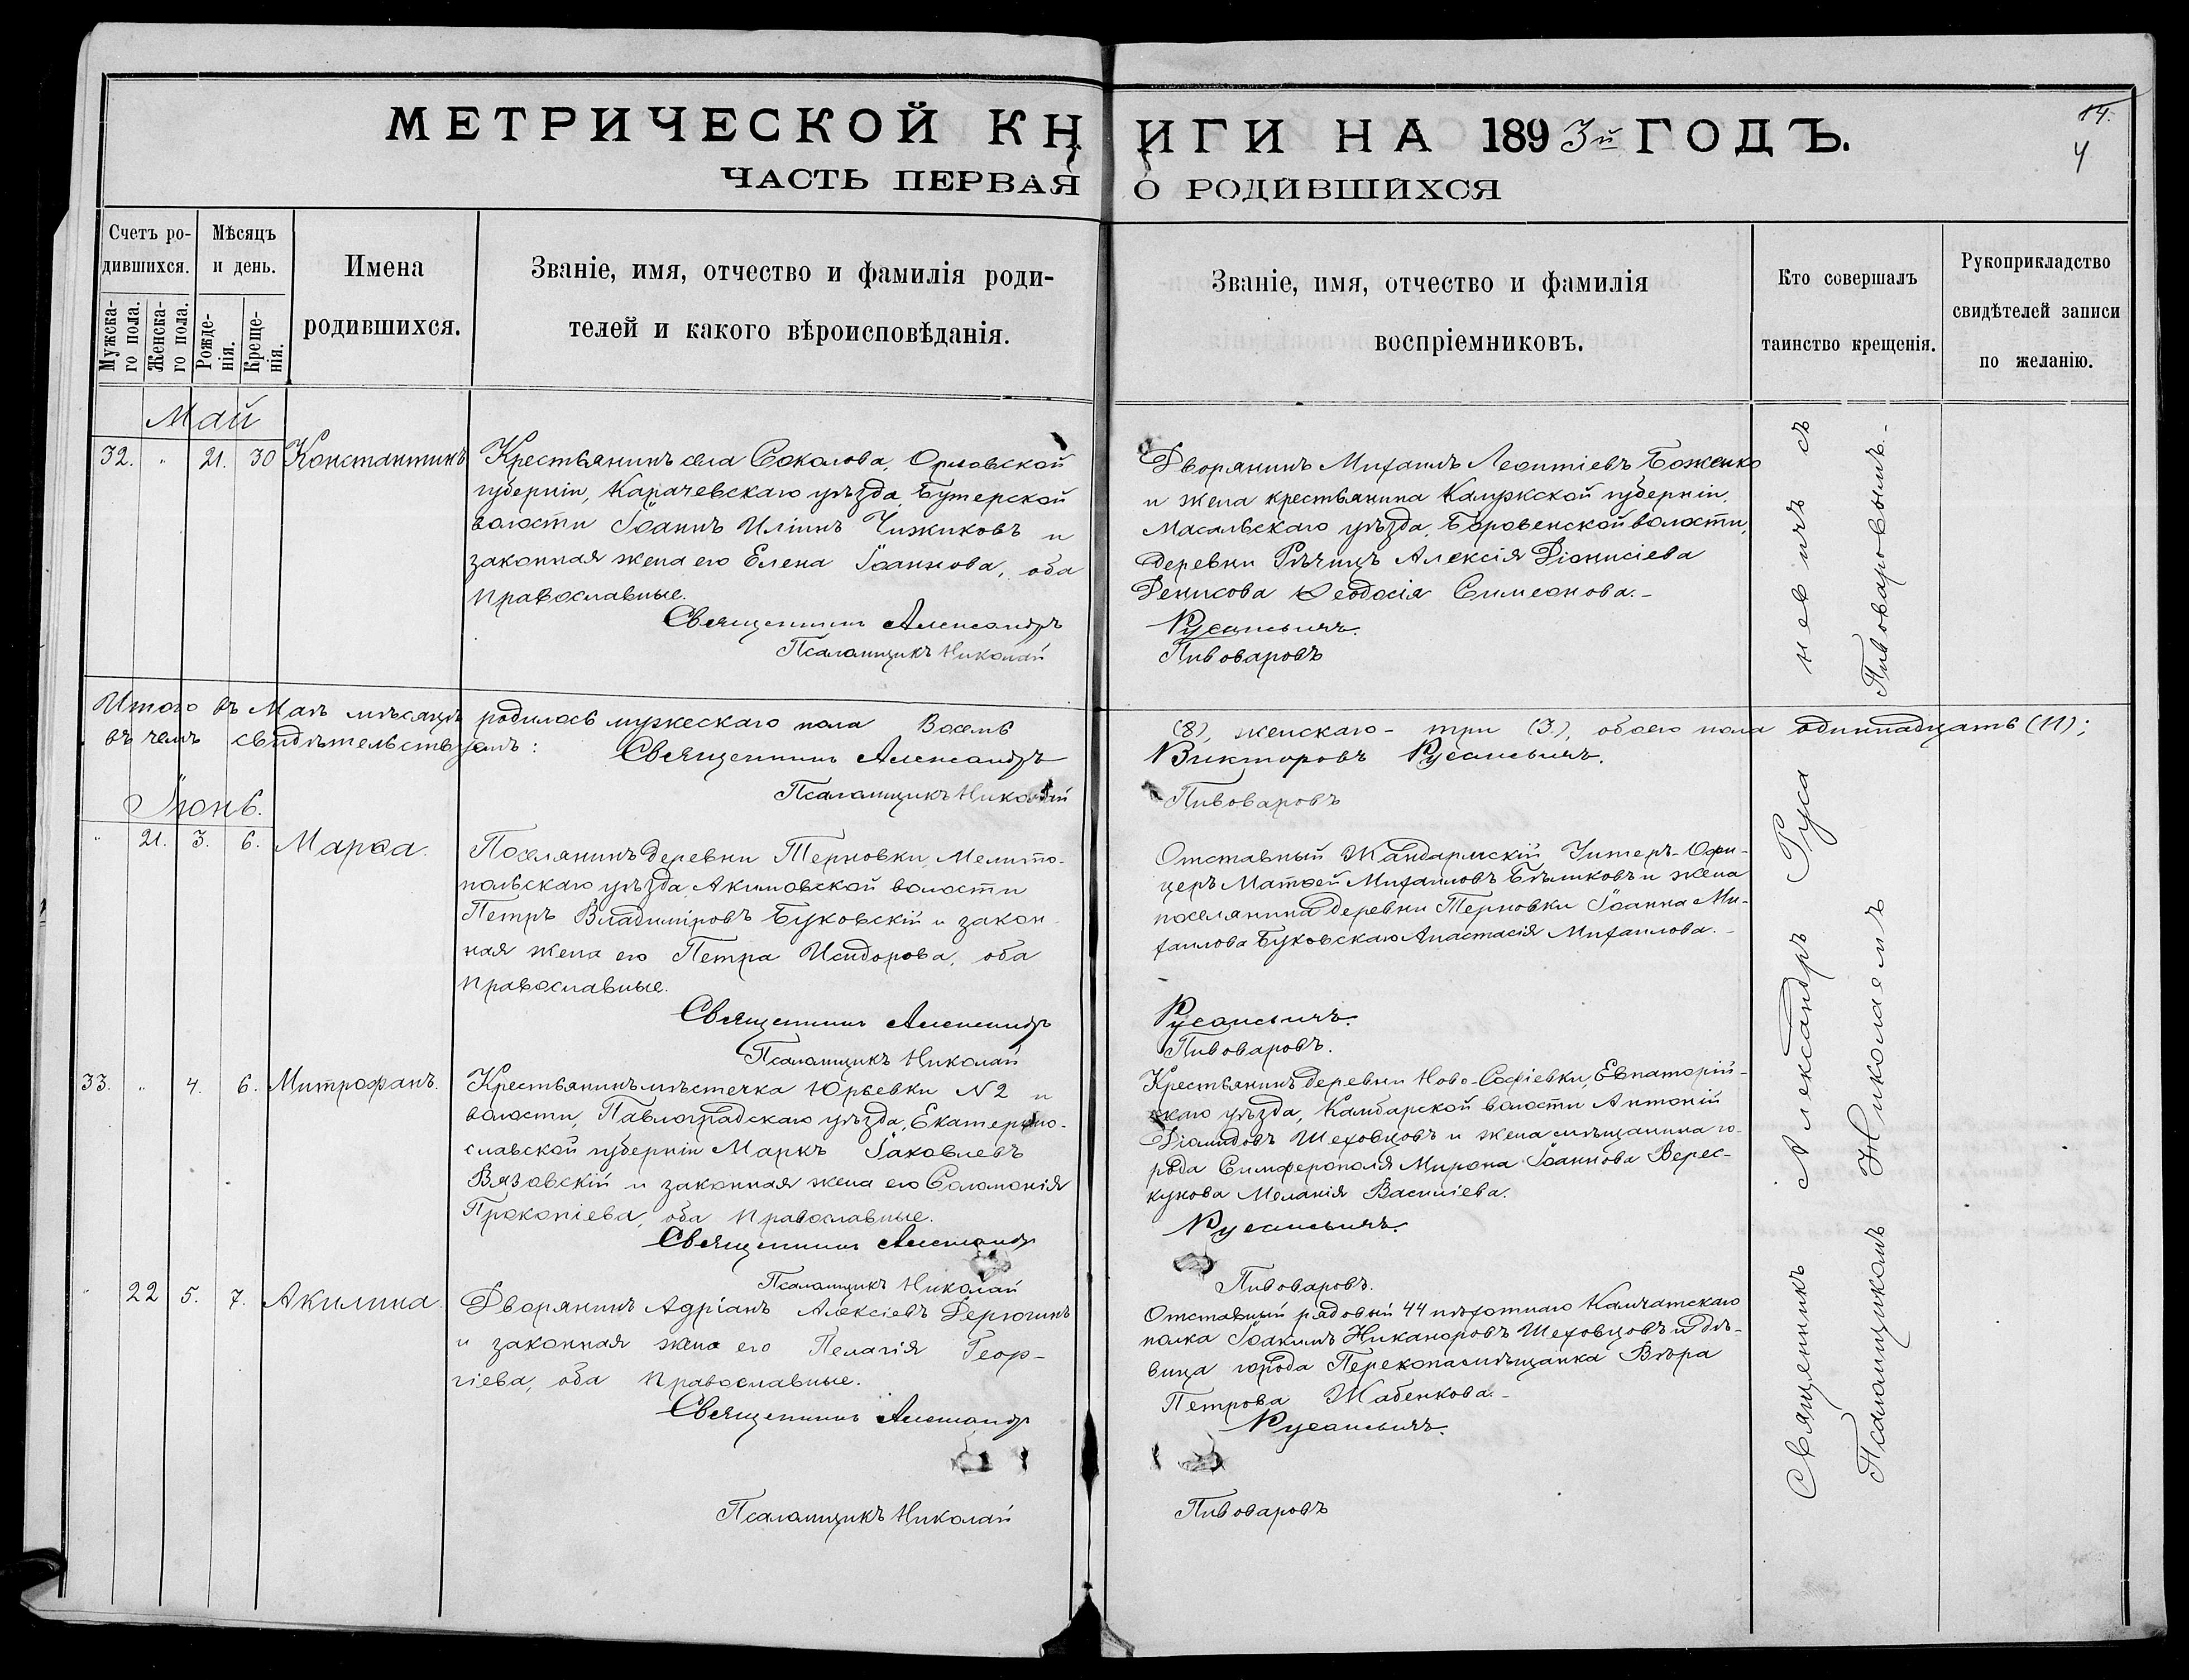 МЕТРИЧЕСКОЙ КНИГИ НА 1893й ГОДЪ.
ЧАСТЬ ПЕРВАЯ О РОДИВШИХСЯ
14.
4
Счетъ ро-
дившихся.
Мужска-
го пола.
Женска-
го пола.
Мѣсяцъ
и день.
Рожде-
нія.
Креще-
нія.
Имена
родившихся.
Званіе, имя, отчество и фамилія роди-
телей и какого вѣроисповѣданія.
Званіе, имя, отчество и фамилія
воспріемниковъ.
Кто совершалъ
таинство крещенія.
Рукоприкладство
свидѣтелей записи
по желанію.
Май
32. " 21. 30 Константинъ
Крестьянинъ села Соколова, Орловской
губерніи, Карачевскаго уѣзда, Бутерской
волости Іоаннъ Иліинъ Чижиковъ и
законная жена его Елена Іоаннова, оба
православные.
Священникъ Александръ
Псаломщикъ Николай
Дворянинъ Михаилъ Леонтіевъ Боженко
и жена крестьянина Калужской губерніи,
Масальскаго уѣзда, Боровенской волости,
деревни Рѣчицъ Алексія Діонисіева
Денисова Ѳеодосія Симеонова.-
Русаневичъ.
Пивоваровъ
Итого въ Маѣ мѣсяцѣ родилось мужескаго пола Восемь (8), женскаго - три (3), обоего пола одиннадцать (11);
въ чемъ свидѣтельствуемъ: Священникъ Александръ Викторовъ Русаневичъ.
Псаломщикъ Николай Пивоваровъ
Іюнь.
" 21. 3. 6. Марѳа.
Поселянинъ деревни Терновки, Мелито-
польскаго уѣзда, Акимовской волости
Петръ Владиміровъ Буковскій и закон-
ная жена его Петра Исидорова, оба
православные.
Священникъ Александръ
Псаломщикъ Николай
Отставный Жандармскій Унтеръ-Офи-
церъ Матѳей Михаиловъ Бѣликовъ и жена
поселянина деревни Терновки Іоанна Ми-
хаилова Буковскаго Анастасія Михаилова.-
Русаневичъ.
Пивоваровъ.
33. " 4. 6. Митрофанъ.
Крестьянинъ мѣстечка Юрьевки N2 и
волости, Павлоградскаго уѣзда, Екатерино-
славской губерніи Маркъ Іаковлевъ
Вязовскій и законная жена его Соломонія
Прокопіева, оба православные.
Священникъ Александръ
Псаломщикъ Николай
Крестьянинъ деревни Ново-Софіевки, Евпаторій-
скаго уѣзда, Камбарской волости Антоній
Діомидовъ Шеховцовъ и жена мѣщанина го-
рода Симферополя Мирона Іоаннова Верес-
кунова Меланія Василіева.
Русаневичъ.
Пивоваровъ.
" 22 5. 7. Акилина.
Дворянинъ Адріанъ Алексіевъ Дерюгинъ
и законная жена его Пелагія Геор-
гіева, оба православные.
Священникъ Александръ
Псаломщикъ Николай
Отставный рядовый 44 пѣхотнаго Камчатскаго
полка Іоакимъ Никаноровъ Шеховцовъ и дѣ-
вица города Перекопа мѣщанка Вѣра
Петрова Жабенкова.-
Русаневичъ.
Пивоваровъ
Священникъ Александръ Русаневичъ съ
Псаломщикомъ Николаемъ Пивоваровымъ.-